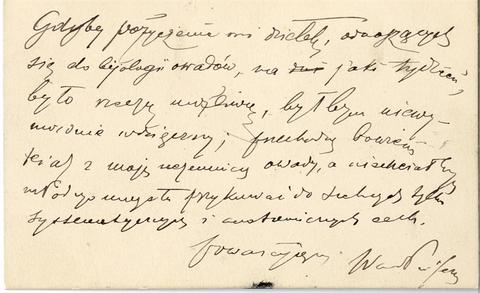 Gdyby pożyczenie mi dziełek, odnoszących
się do biologii owadów, na jaki tydzień,
było rzeczą możliwą, byłbym niewy-
mownie wdzięczny; przechodzę bowiem
teraz z moją uczennicą owady, a nie chciałbym
młodego umysłu przykuwać do suchych tylko
systematycznych i anatomicznych cech.